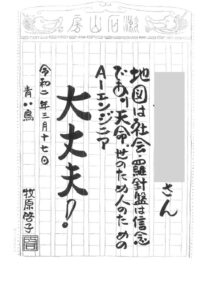 さん
地図は社会 羅針盤は信念
であり 天命 世のため人のための
AIエンジニア
大丈夫!
令和二年三月十七日
青い鳥
牧原啓子